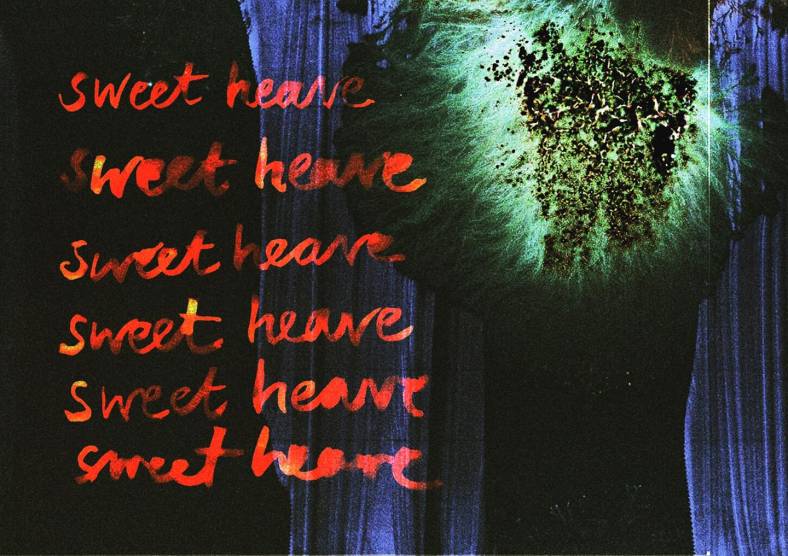 sweet heave
sweet heave
sweet heave
sweet heave
sweet heave
sweet heave